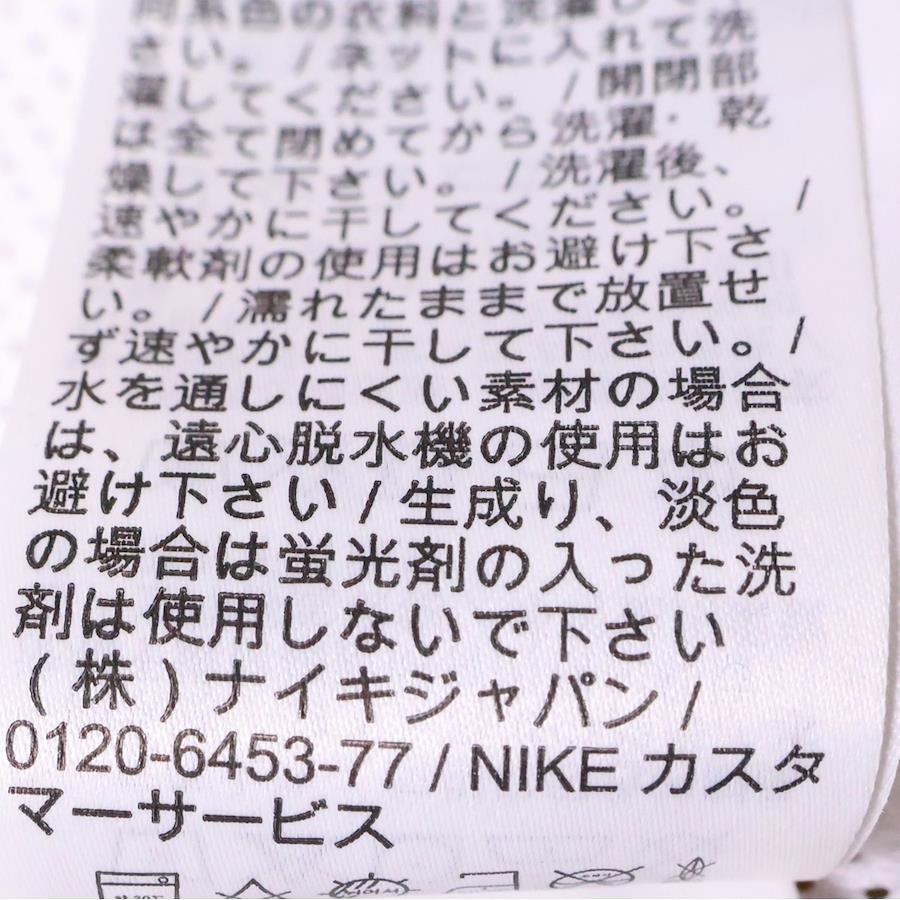 同系色の衣料と洗濯して下
さい。/ネットに入れて洗
濯してください。/開閉部
は全て閉めてから洗濯・乾
燥して下さい。/洗濯後、
速やかに干してください。/
柔軟剤の使用はお避け下さ
い。/濡れたままで放置せ
ず速やかに干して下さい。/
水を通しにくい素材の場合
は、遠心脱水機の使用はお
避け下さい/生成り、淡色
の場合は蛍光剤の入った洗
剤は使用しないで下さい
(株)ナイキジャパン/
0120-6453-77 / NIKE カスタ
マーサービス